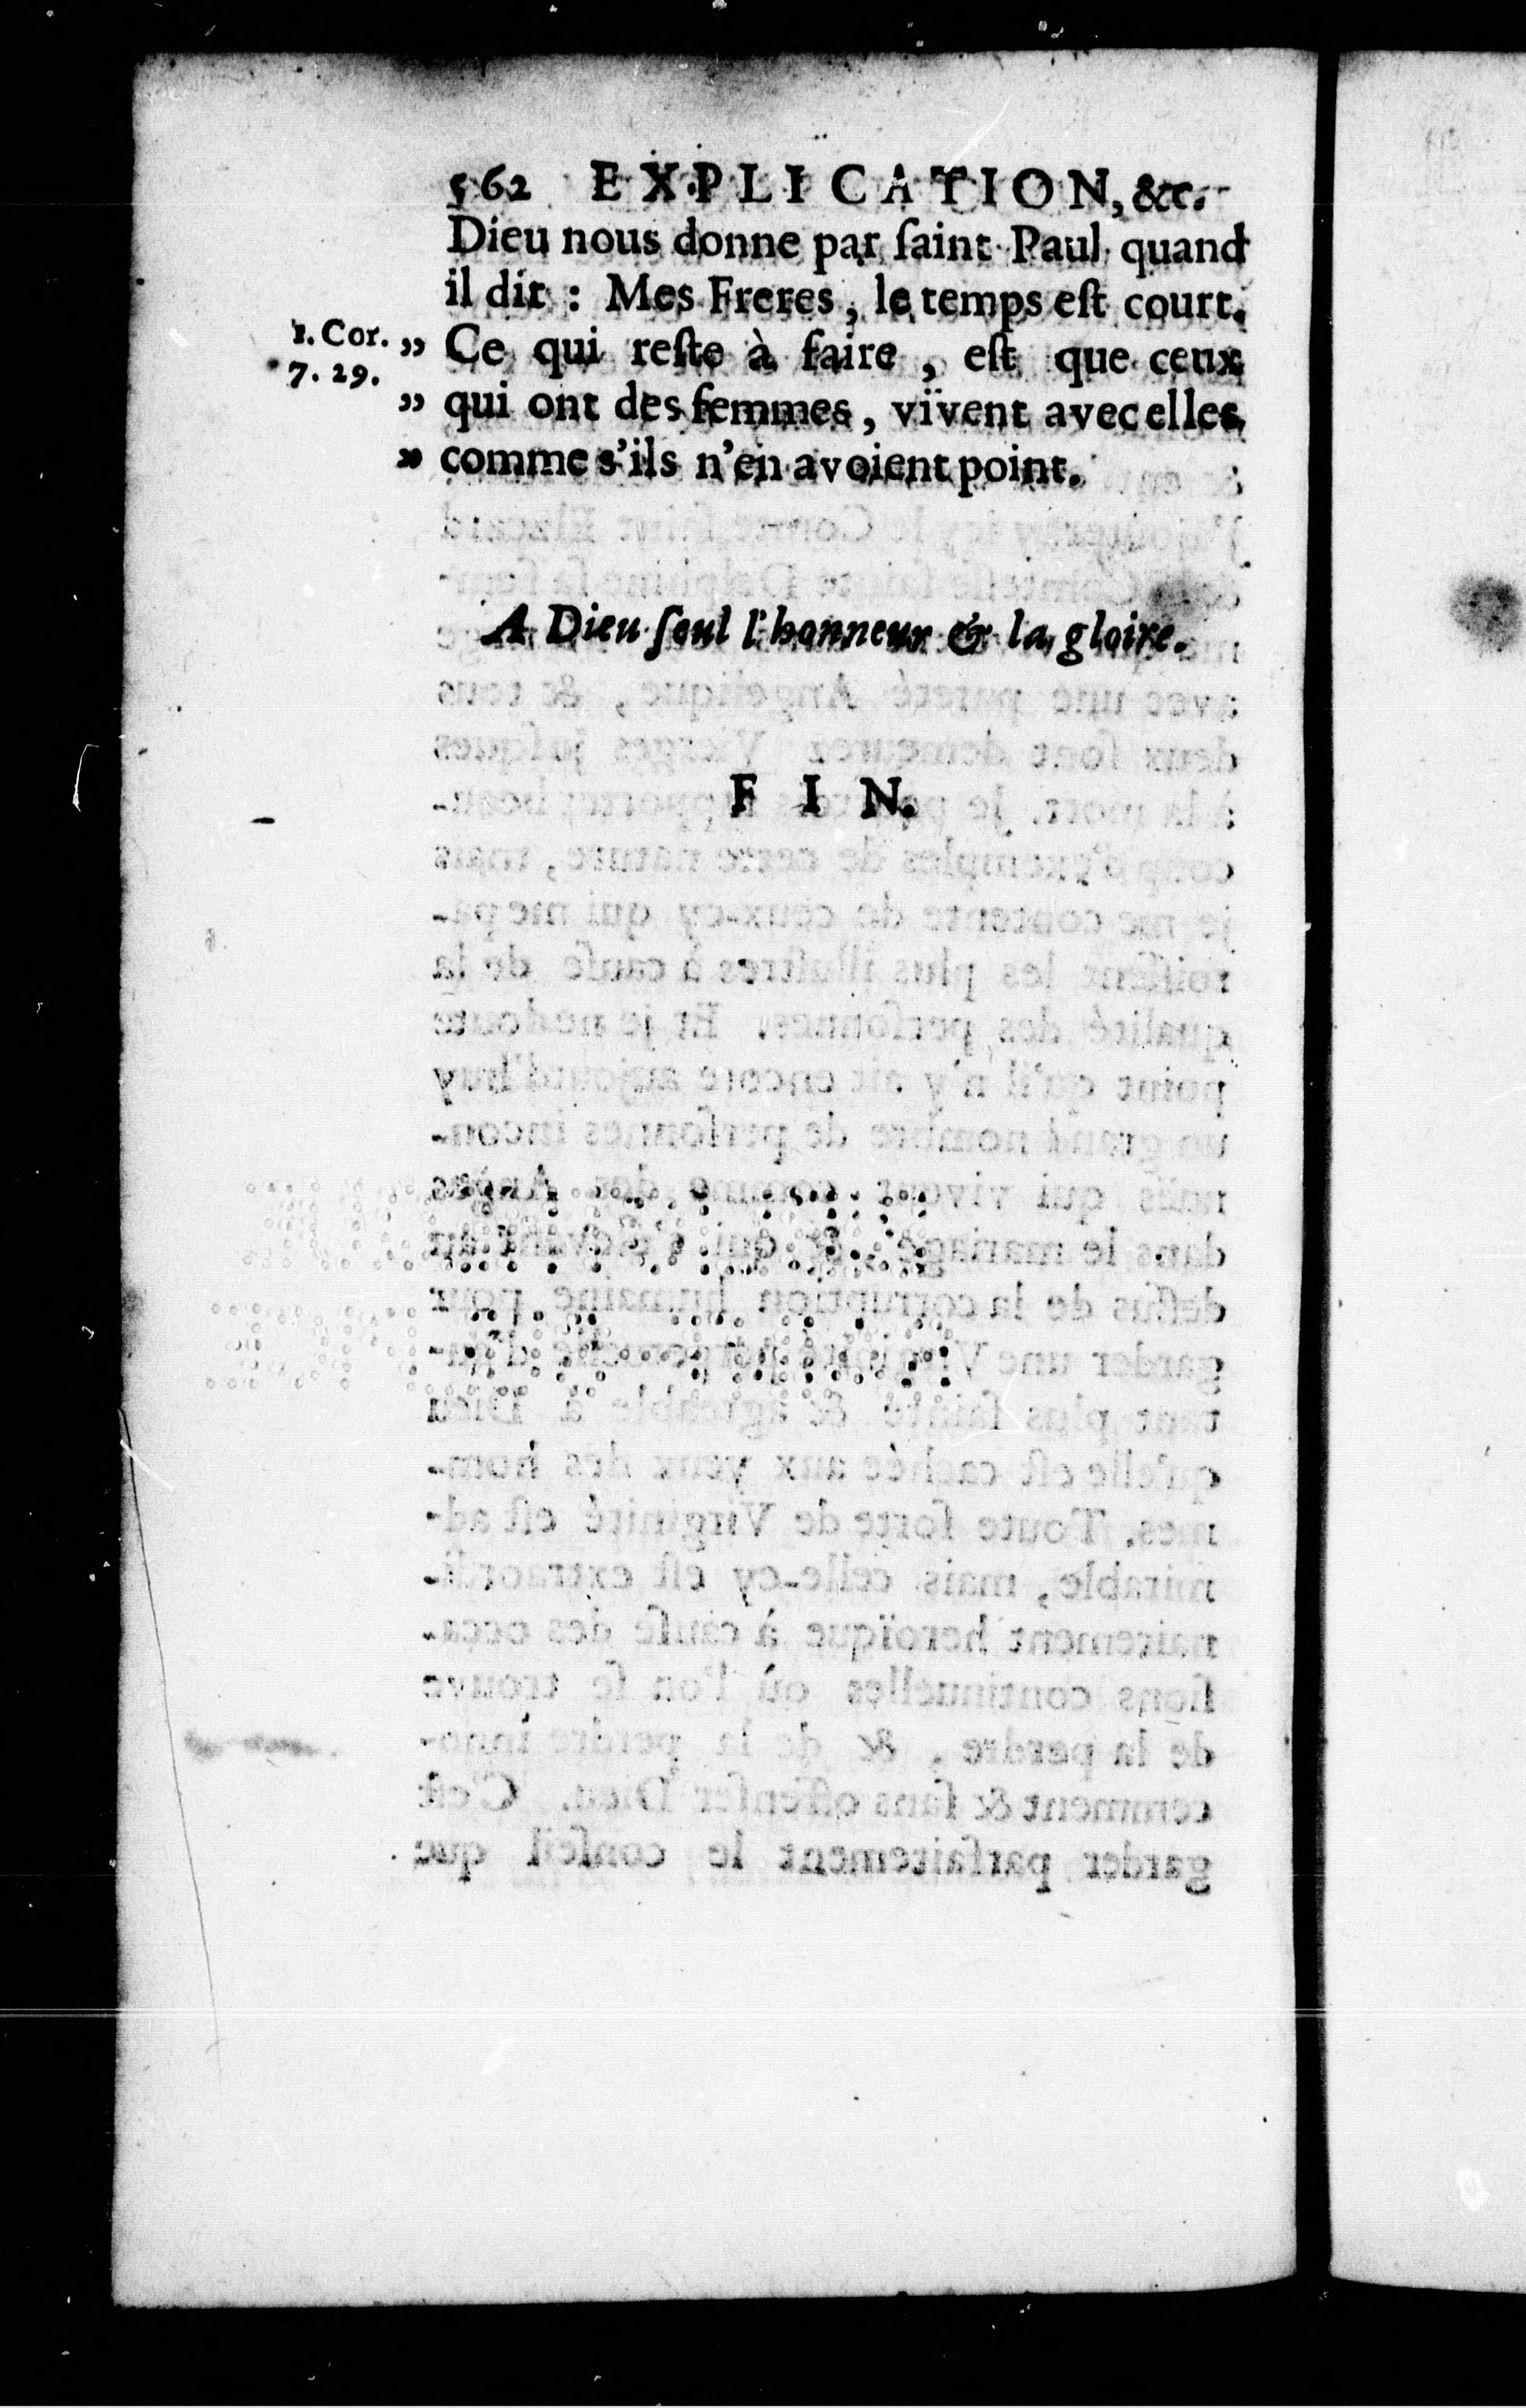 562 EXPLICATION, &c.
Dieu nous donne par ſaint Paul quand
il dit : Mes Freres, le temps eſt court.
1. Cor. 7. 29.
„ Ce qui reſte à faire, eſt que ceux
„ qui ont des femmes, vivent avec elles
„ comme s'ils n'en avoient point.
A Dieu ſeul l'honneur & la gloire.
FIN.